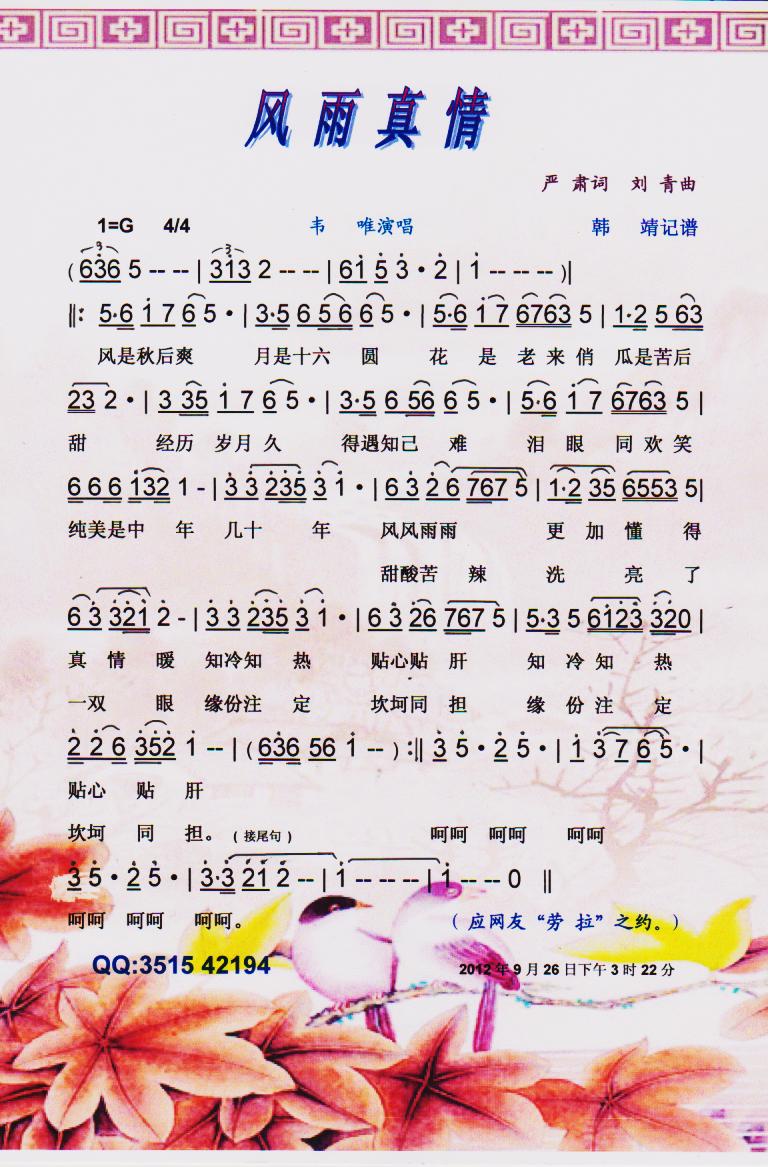 风雨真情
严 肃词 刘 青曲
1=G 4/4 韦 唯演唱 韩 靖记谱
( 636 5 -- -- | 313 2 -- -- | 61 5 3 · 2 | 1 -- -- -- )|
‖: 5·6 1 7 6 5 · | 3·5 6 5 6 6 5 · | 5·6 1 7 6763 5 | 1·2 5 63
风是秋后爽 月是十六 圆 花 是 老 来 俏 瓜是苦后
23 2 · | 3 35 1 7 6 5 · | 3·5 6 56 6 5 · | 5·6 1 7 6763 5 |
甜 经历 岁月 久 得遇知己 难 泪 眼 同 欢 笑
6 6 6 132 1 - | 3 3 235 3 1 · | 6 3 2 6 767 5 | 1·2 35 6553 5|
纯美是中 年 几十 年 风风雨雨 更 加 懂 得
甜酸苦 辣 洗 亮 了
6 3 321 2 - | 3 3 235 3 1 · | 6 3 26 767 5 | 5·3 5 6123 320 |
真 情 暖 知冷知 热 贴心贴 肝 知 冷 知 热
一双 眼 缘份注 定 坎坷同 担 缘 份 注 定
2 2 6 352 1 -- | ( 636 56 1 -- ) :‖ 3 5 · 2 5 · | 1 3 7 6 5 · |
贴心 贴 肝
坎坷 同 担。 ( 接尾句 ) 呵呵 呵呵 呵呵
3 5 · 2 5 · | 3·3 21 2 -- | 1 -- -- -- | 1 -- -- 0 ‖
呵呵 呵呵 呵呵。 ( 应网友“劳 拉”之约。)
QQ:3515 42194 2012 年 9 月 26 日下午 3 时 22 分